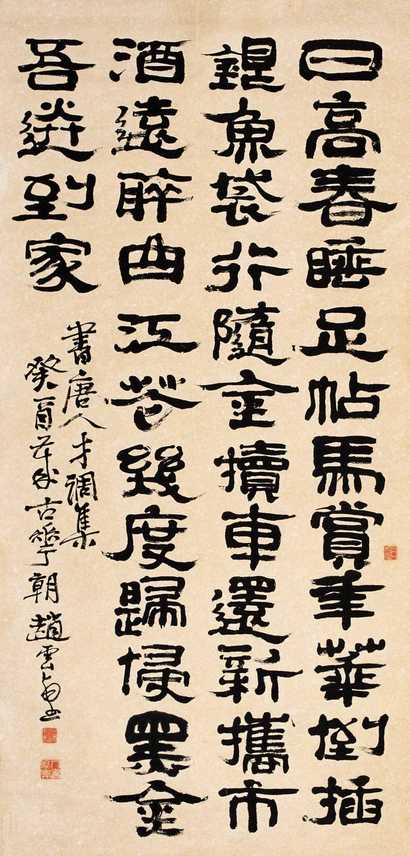 日高春睡足帖馬賞年華倒插
銀魚袋行隨金犢車還新攜市
酒遠醉曲江花幾度歸侵黑金
吾送到家
書唐人才調集
癸酉 古華 朝趙雲壑